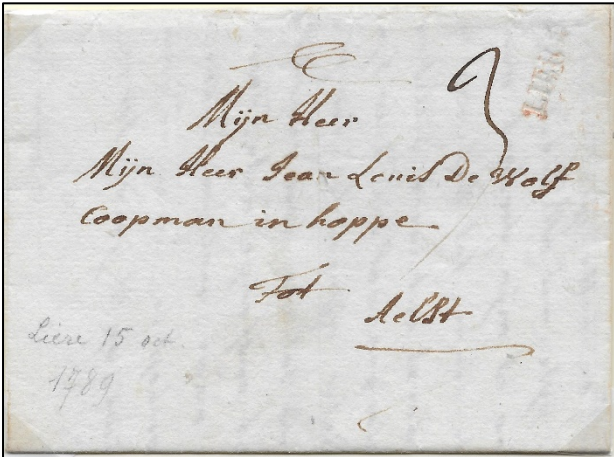 3
LIERRE
Mijn Heer
Mijn Heer Jean Louis De Wolf
Coopman in hoppe
Tot
Aelst
Liere 15 oct.
1789